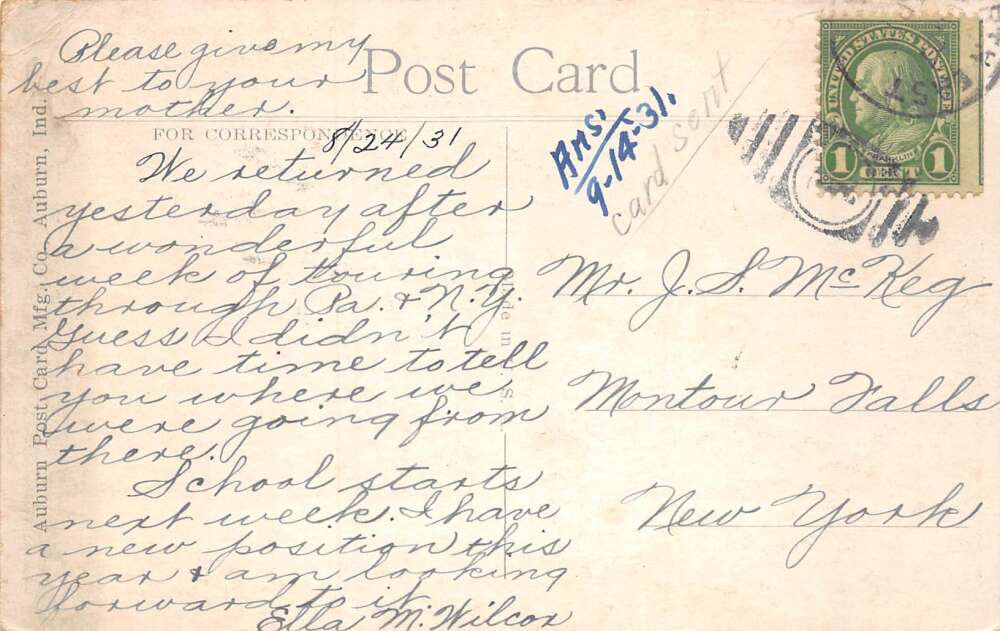 Please give my
best to your
mother.
Post Card
FOR CORRESPONDENCE
8/24/31
We returned
yesterday after
a wonderful
week of touring
through Pa. & N.Y.
Guess I didn't
have time to tell
you where we
were going from
there.
School starts
next week. I have
a new position this
year & am looking
forward to it.
Ella M. Wilcox
Auburn Post Card Mfg. Co. Auburn, Ind.
Made in U. S.
Ans.
9-14-31.
card sent
UNITED STATES POSTAGE
FRANKLIN
1 CENT 1
Mr. J. S. McKeg
Montour Falls
New York